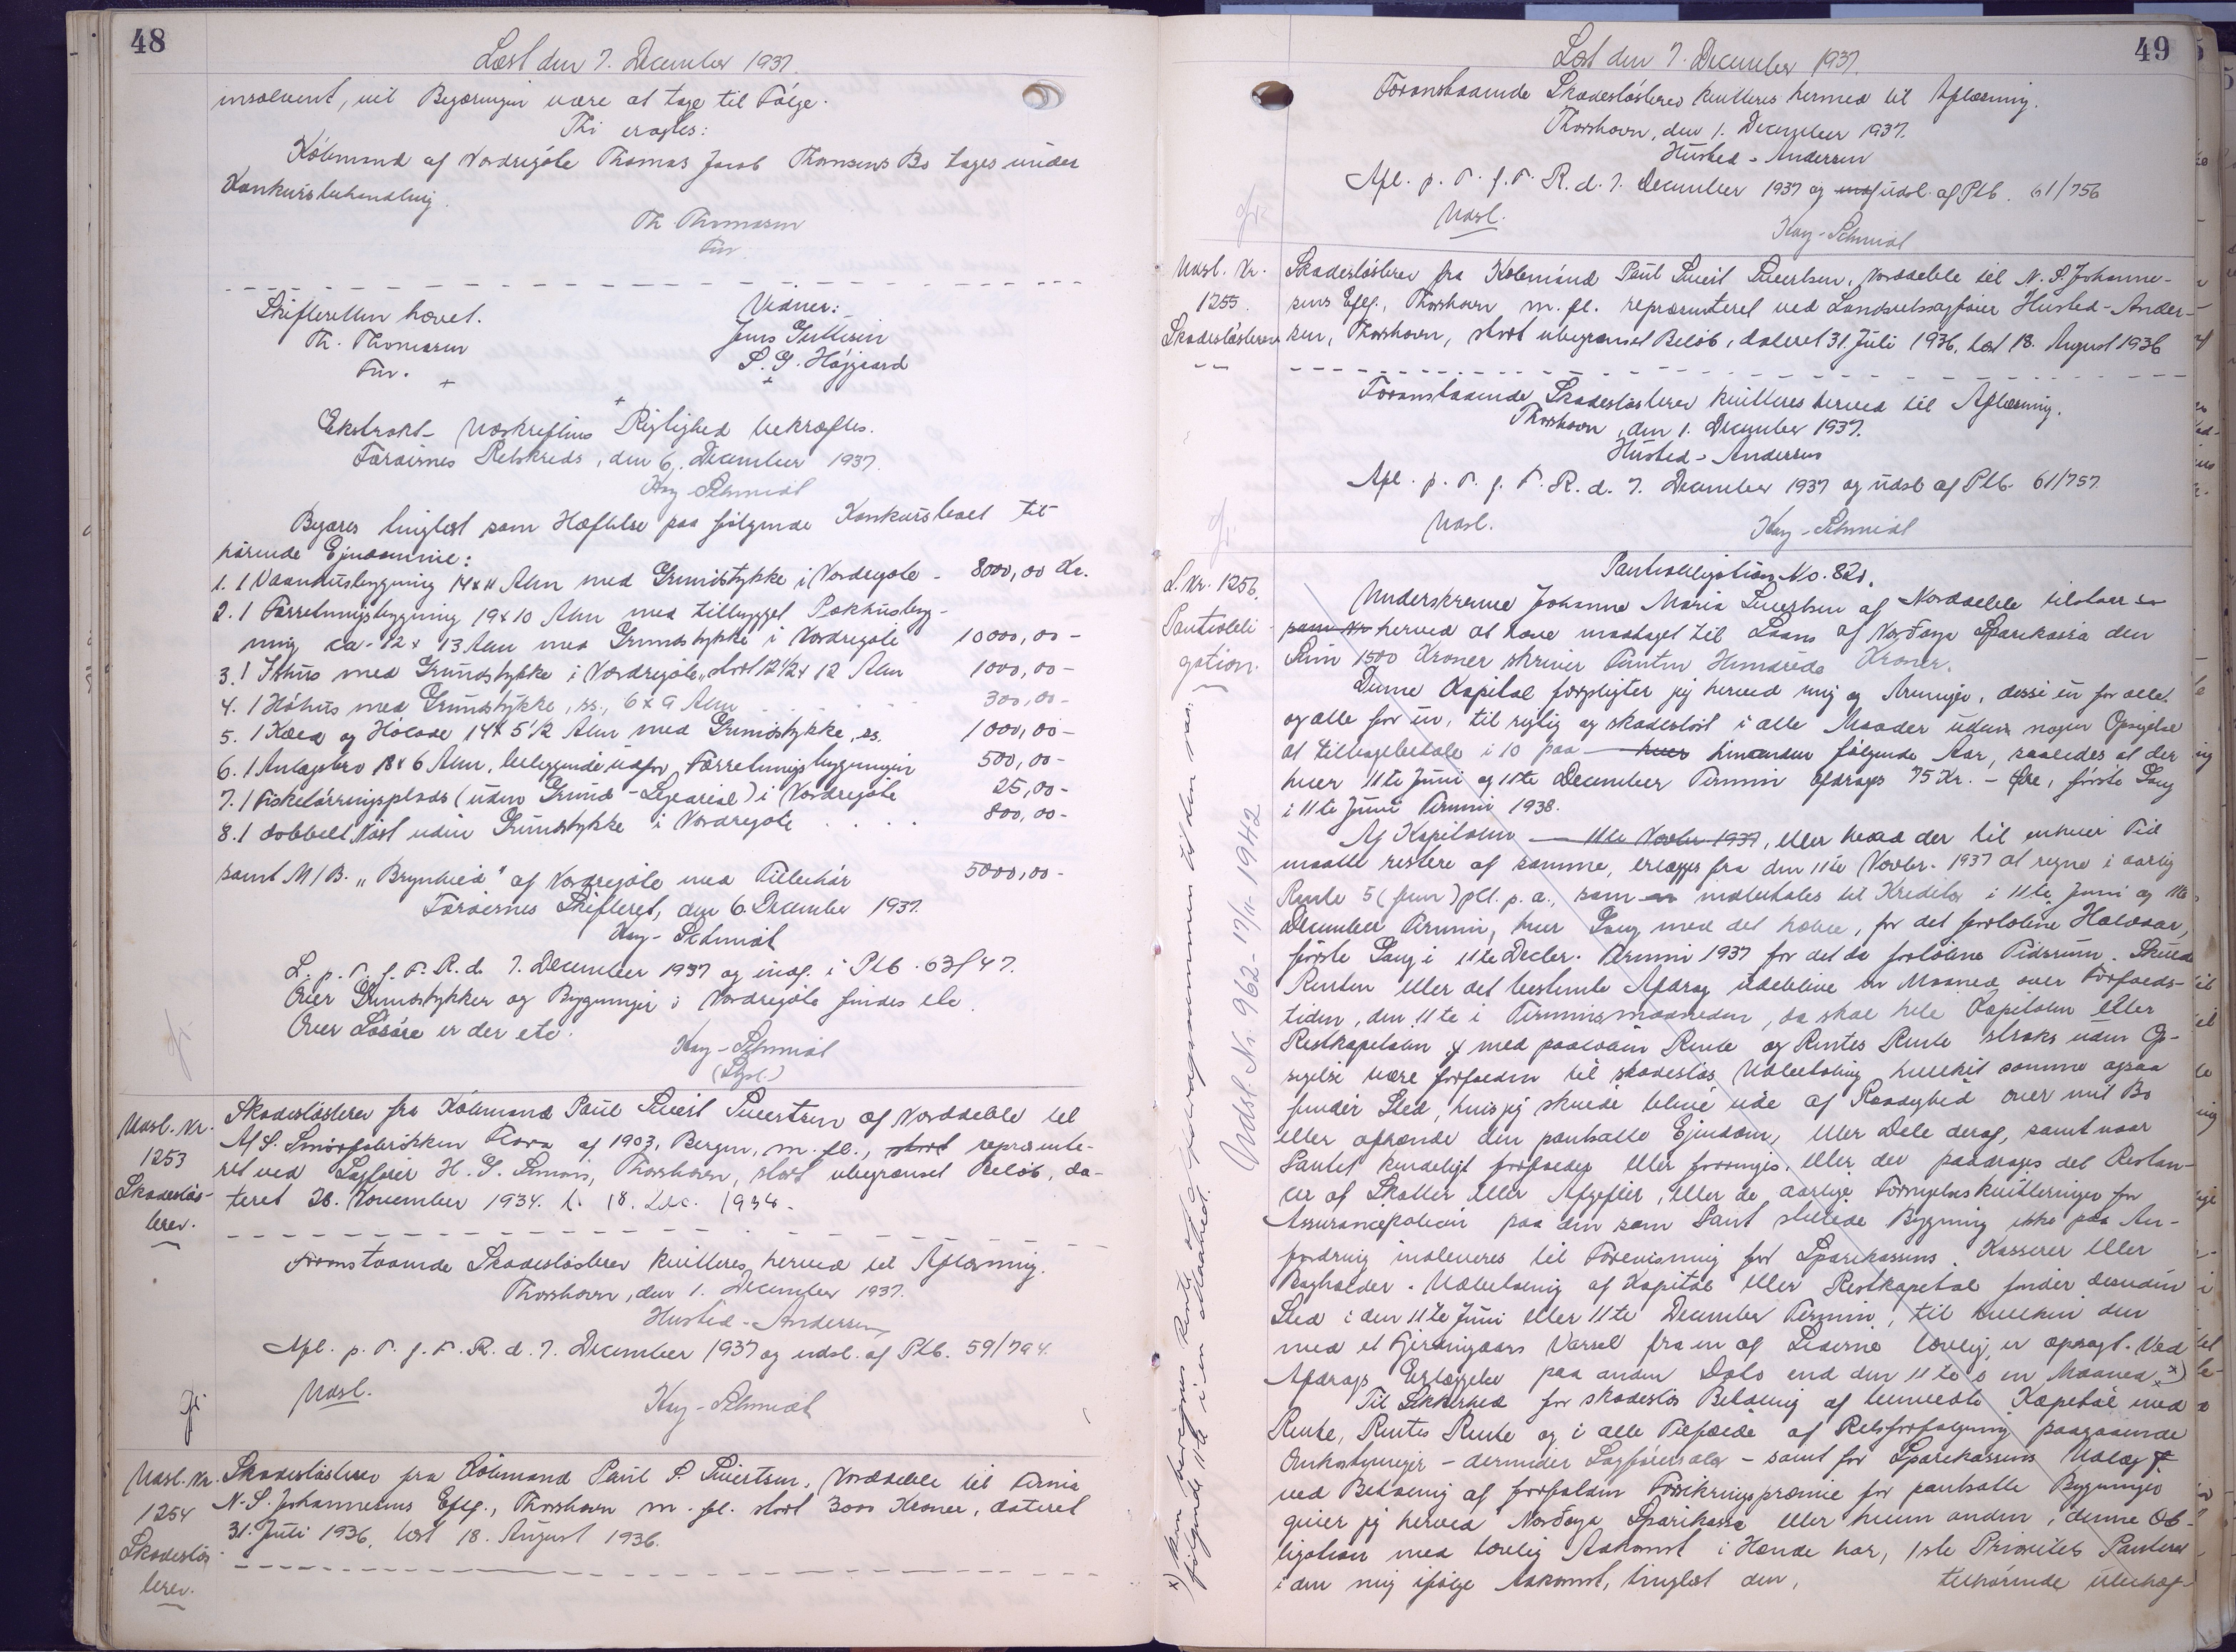 48
Læst den 7. December 1937.
insolvent, vil Begæringen være at tage til Følge.
Thi eragtes:
Købmand af Nordregøte Thomas Jacob Thomsens Bo tages under
Konkursbehandling.
Th. Thomasen
Fm.
Skifteretten hævet.
Th. Thomasen
Fm.
Vidner:
Jens Gullesen
S. G. Højgaard
Ekstrakt-Udskriftens Rigtighed bekræftes.
Færøernes Retskreds, den 6. December 1937.
Kay-Schmidt
Begæres tinglæst som Hæftelse paa følgende Konkursboet til-
hørende Ejendomme:
1. 1 Vaaningsbygning 14x11 Alen med Grundstykke i Nordregøte - 8000,00 Kr.
2. 1 Forretningsbygning 19x10 Alen med tilbygget Pakhusbyg-
ning ca. 12 x 13 Alen med Grundstykke i Nordregøte 10000,00 -
3. 1 Ishus med Grundstykke i Nordregøte, stort 12 1/2 x 12 Alen 1000,00 -
4. 1 Høhus med Grundstykke, ss., 6x9 Alen 300,00 -
5. 1 Kælder og Hølade 14x5 1/2 Alen med Grundstykke, ss. 1000,00 -
6. 1 Anlægsbro 18x6 Alen, beliggende udfor Forretningsbygningen 500,00 -
7. 1 Fisketørringsplads (uden Grund - Lejeareal) i Nordregøte 25,00 -
8. 1 dobbelt Nøst uden Grundstykke i Nordregøte 800,00 -
samt M/B. "Brynhild" af Nordregøte med Tilbehør 5000,00 -
Færøernes Skifteret, den 6. December 1937.
Kay-Schmidt
L. p. T. f. F. R. d. 7. December 1937 og indf. i Ptb. 63f47.
Over Grundstykker og Bygninger i Nordregøte findes etc.
Over Løsøre er der etc.
Kay-Schmidt
Udsl. Nr.
1253
Skadesløs-
brev.
Skadesløsbrev fra Købmand Paul Sivert Sivertsen af Norddeble til
A/S. Smørfabrikken Flora af 1903, Bergen, m. fl., stort repræsente-
ret ved Sagfører H. G. Simonis, Thorshavn, stort ubegrænset Beløb, da-
teret 28. November 1934. l. 18. Dec. 1934.
Foranstaaende Skadesløsbrev kvitteres herved til Aflæsning.
Thorshavn, den 1. December 1937.
Husted-Andersen
Afl. p. T. f. F. R. d. 7. December 1937 og udsl. af Ptb. 59/794.
Udsl.
Kay-Schmidt
Udsl. Nr.
1254
Skadesløs
brev.
Skadesløsbrev fra Købmand Paul S. Sivertsen, Norddeble til Firma
N. S. Johannesens Eftf., Thorshavn m. fl. stort 3000 Kroner, dateret
31. Juli 1936, læst 18. August 1936.
49
Læst den 7. December 1937.
Foranstaaende Skadesløsbrev kvitteres hermed til Aflæsning.
Thorshavn, den 1. December 1937.
Husted-Andersen
Afl. p. T. f. F. R. d. 7. December 1937 og udsl. af Ptb. 61/756
Udsl.
Kay-Schmidt
Udsl. Nr.
1255.
Skadesløsbrev
Skadesløsbrev fra Købmand Paul Sivert Sivertsen, Norddeble til N. S. Johanne-
sens Eftf., Thorshavn m. fl. repræsenteret ved Landsretssagfører Husted-Ander-
sen, Thorshavn, stort ubegrænset Beløb, dateret 31. Juli 1936, læst 18. August 1936
Foranstaaende Skadesløsbrev kvitteres herved til Aflæsning.
Thorshavn, den 1. December 1937.
Husted-Andersen
Afl. p. T. f. F. R. d. 7. December 1937 og udsl. af Ptb. 61/757.
Udsl.
Kay-Schmidt
L. Nr. 1256.
Pantobli-
gation.
Pantobligation No. 820.
Underskrevne Johanne Maria Sivertsen af Norddeble tilstaar
herved at have modtaget til Laans af Norðoya Sparikassa den
Sum 1500 Kroner skriver Femten Hundrede Kroner.
Denne Kapital forpligter jeg herved mig og Arvinger, disse en for alle
og alle for en, til rigtig og skadesløst i alle Maader uden nogen Opsigelse
at tilbagebetale i 10 paa hver hinanden følgende Aar, saaledes at der
hver 11te Juni og 11te December Termin afdrages 75 Kr. - Øre, første Gang
i 11te Juni Termin 1938.
Af Kapitalen 11te Novbr. 1937, eller hvad der til enhver Tid
maatte restere af samme, erlægges fra den 11te Novbr. 1937 at regne i aarlig
Rente 5 (fem) pCt. p. a., som indbetales til Kreditor i 11te Juni og 11te
December Termin, hver Gang med det halve, for det forløbne Halvaar,
første Gang i 11te Decbr. Termin 1937 for det da forløbne Tidsrum. Skulde
Renten eller det bestemte Afdrag udeblive en Maaned over Forfalds-
tiden, den 11te i Terminsmaaneden, da skal hele Kapitalen eller
Restkapitalen med paaløben Rente og Rentes Rente straks uden Op-
sigelse være forfalden til skadesløs Udbetaling hvilket samme ogsaa
finder Sted, hvis jeg skulde blive ude af Raadighed over mit Bo
eller afhænde den pantsatte Ejendom, eller Dele deraf, samt naar
Pantet kendeligt forfalder eller forringes, eller der paadrages det Restan-
cer af Skatter eller Afgifter, eller de aarlige Fornyelseskvitteringer for
Assurancepolicen paa den som Pant stillede Bygning ikke paa An-
fordring indleveres til Forevisning for Sparekassens Kasserer eller
Bogholder. Udbetaling af Kapital eller Restkapital finder desuden
Sted i den 11te Juni eller 11te December Termin, til hvilken den
med et Fjerdingaars Varsel fra en af Siderne lovlig er opsagt. Ved
Afdrags Erlæggelse paa anden Dato end den 11te i en Maaned x)
Til Sikkerhed for skadesløs Betaling af bemeldte Kapital med
Rente, Rentes Rente og i alle Tilfælde af Retsforfølgning paagaaende
Omkostninger - derunder Sagførersalær - samt for Sparekassens Udlæg
ved Betaling af forfalden Forsikringspræmie for pantsatte Bygninger
giver jeg herved Norðoya Sparikassa eller hvem anden, denne Ob-
ligation med lovlig Adkomst i Hænde har, 1ste Prioritets Panteret
i den mig ifølge Adkomst, tinglæst den, tilhørende ubehæf-
Udsl. Nr. 962 - 17/11-1942
x) kan beregnes Rente af
følgende 11te i en Maaned.